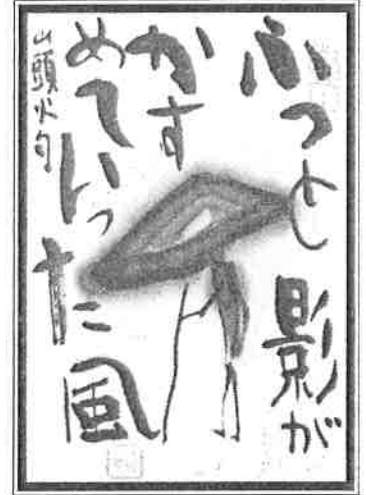 ふつと影が
かす
めていった風
山頭火句